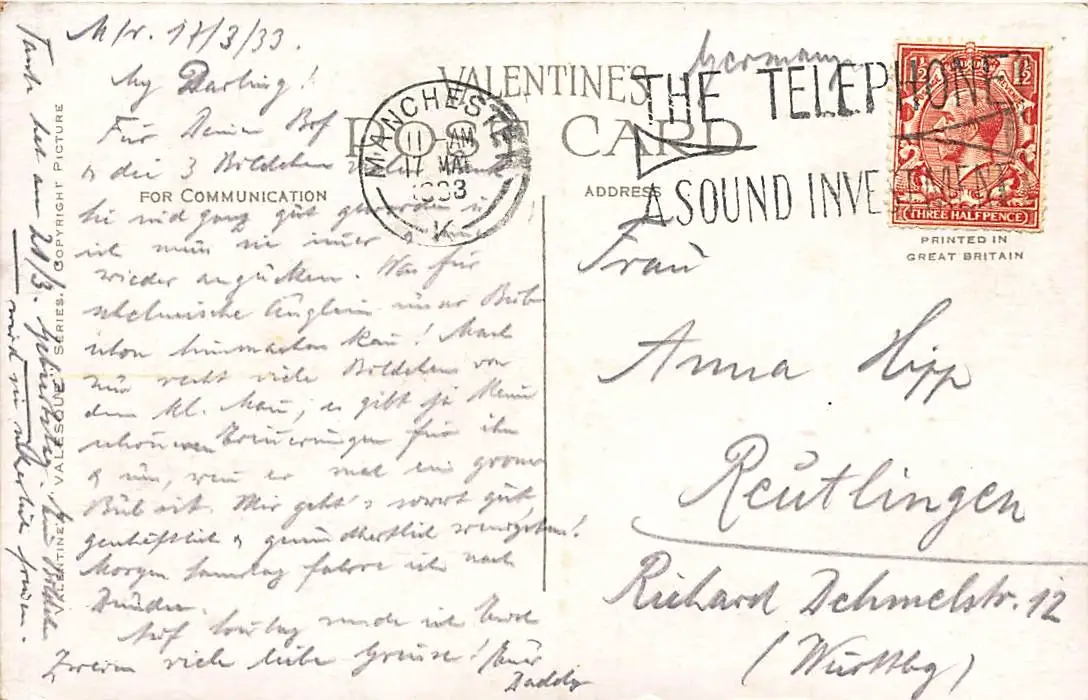 M/r. 17/3/33.
My Darling!
Für Deinen Brf
& die 3 Bildchen vielen Dank
sie sind ganz gut geworden &
ich muss sie immer &
wieder angucken. Was für
schelmische Äuglein unser Bub
schon hinmachen kann! Mach
nur recht viele Bildchen von
dem kl. Mann, es gibt ja keine
schöneren Erinnerungen für ihn
& uns, wenn er mal ein grosser
Bub ist. Mir geht's soweit gut,
geschäftlich & gesundheitlich wenigstens!
Morgen Samstag fahre ich nach
Dundee.
Auf
viele liebe Grüsse! Euer
Daddy
Tante hat am 20/3. Geburtstag. Ein Bildchen
wird sie sicherlich freuen.
VALENTINE'S "VALESQUE" SERIES. COPYRIGHT PICTURE
VALENTINE'S
POST CARD
FOR COMMUNICATION
ADDRESS
Germany
MANCHESTER
11 AM
17 MAR
1933
THE TELEPHONE
A SOUND INVESTMENT
THREE HALFPENCE
PRINTED IN
GREAT BRITAIN
Frau
Anna Hipp
Reutlingen
Richard Dehmelstr. 12
(Württbg)